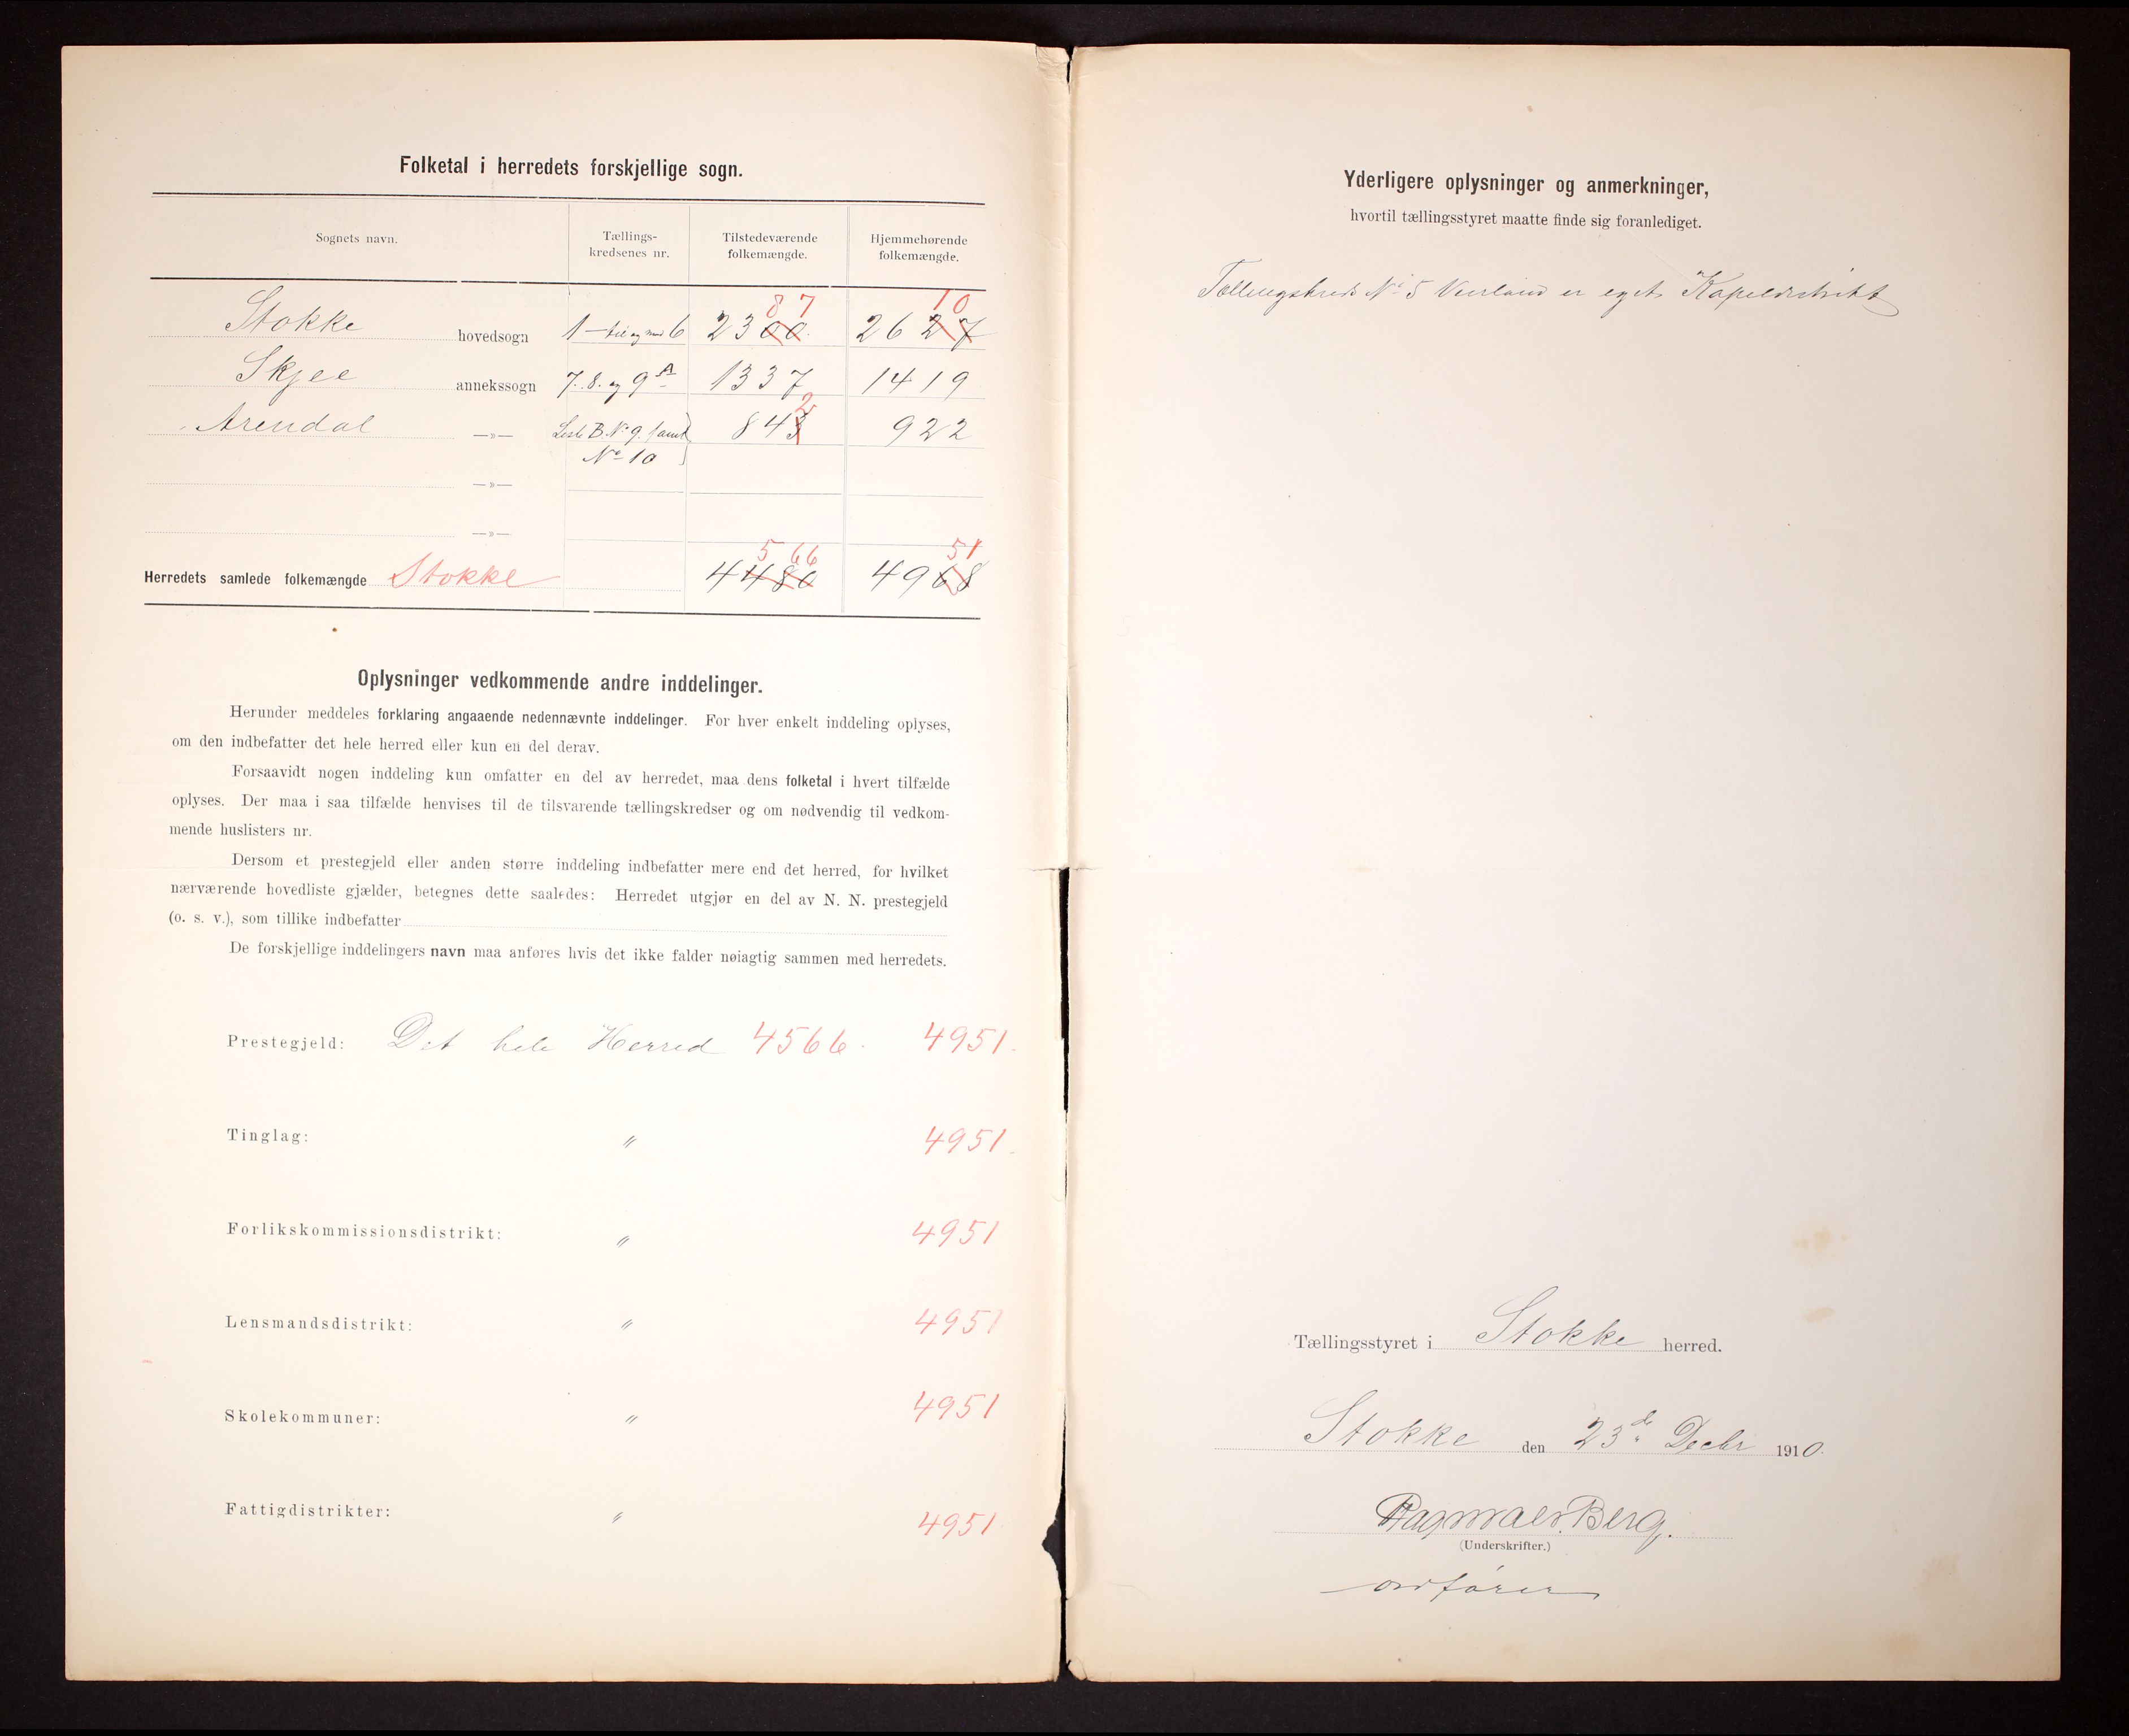 Folketal i herredets forskjellige sogn.
Sognets navn.
Tællings-
kredsenes nr.
Tilstedeværende
folkemængde.
Hjemmehørende
folkemængde.
87 10
Stokke hovedsogn 1 – til og med 6 2300. 2627
Skjee annekssogn 7. 8. og 9 A 1337 1419
2
Arendal —»— Liste B. No 9. samt 843 922
No 10
—»—
—»—
566 51
Herredets samlede folkemængde Stokke 4480 4968
Oplysninger vedkommende andre inddelinger.
Herunder meddeles forklaring angaaende nedennævnte inddelinger. For hver enkelt inddeling oplyses,
om den indbefatter det hele herred eller kun en del derav.
Forsaavidt nogen inddeling kun omfatter en del av herredet, maa dens folketal i hvert tilfælde
oplyses. Der maa i saa tilfælde henvises til de tilsvarende tællingskredser og om nødvendig til vedkom-
mende huslisters nr.
Dersom et prestegjeld eller anden større inddeling indbefatter mere end det herred, for hvilket
nærværende hovedliste gjælder, betegnes dette saaledes: Herredet utgjør en del av N. N. prestegjeld
(o. s. v.), som tillike indbefatter
De forskjellige inddelingers navn maa anføres hvis det ikke falder nøiagtig sammen med herredets.
Prestegjeld: Det hele Herred 4566. 4951.
Tinglag: " 4951.
Forlikskommissionsdistrikt: " 4951
Lensmandsdistrikt: " 4951
Skolekommuner: " 4951
Fattigdistrikter: " 4951
Yderligere oplysninger og anmerkninger,
hvortil tællingsstyret maatte finde sig foranlediget.
Tællingskreds No 5 er eget Kapeldistrikt
Tællingsstyret i Stokke herred.
Stokke den 23de Decbr 1910.
Berg.
(Underskrifter.)
ordfører